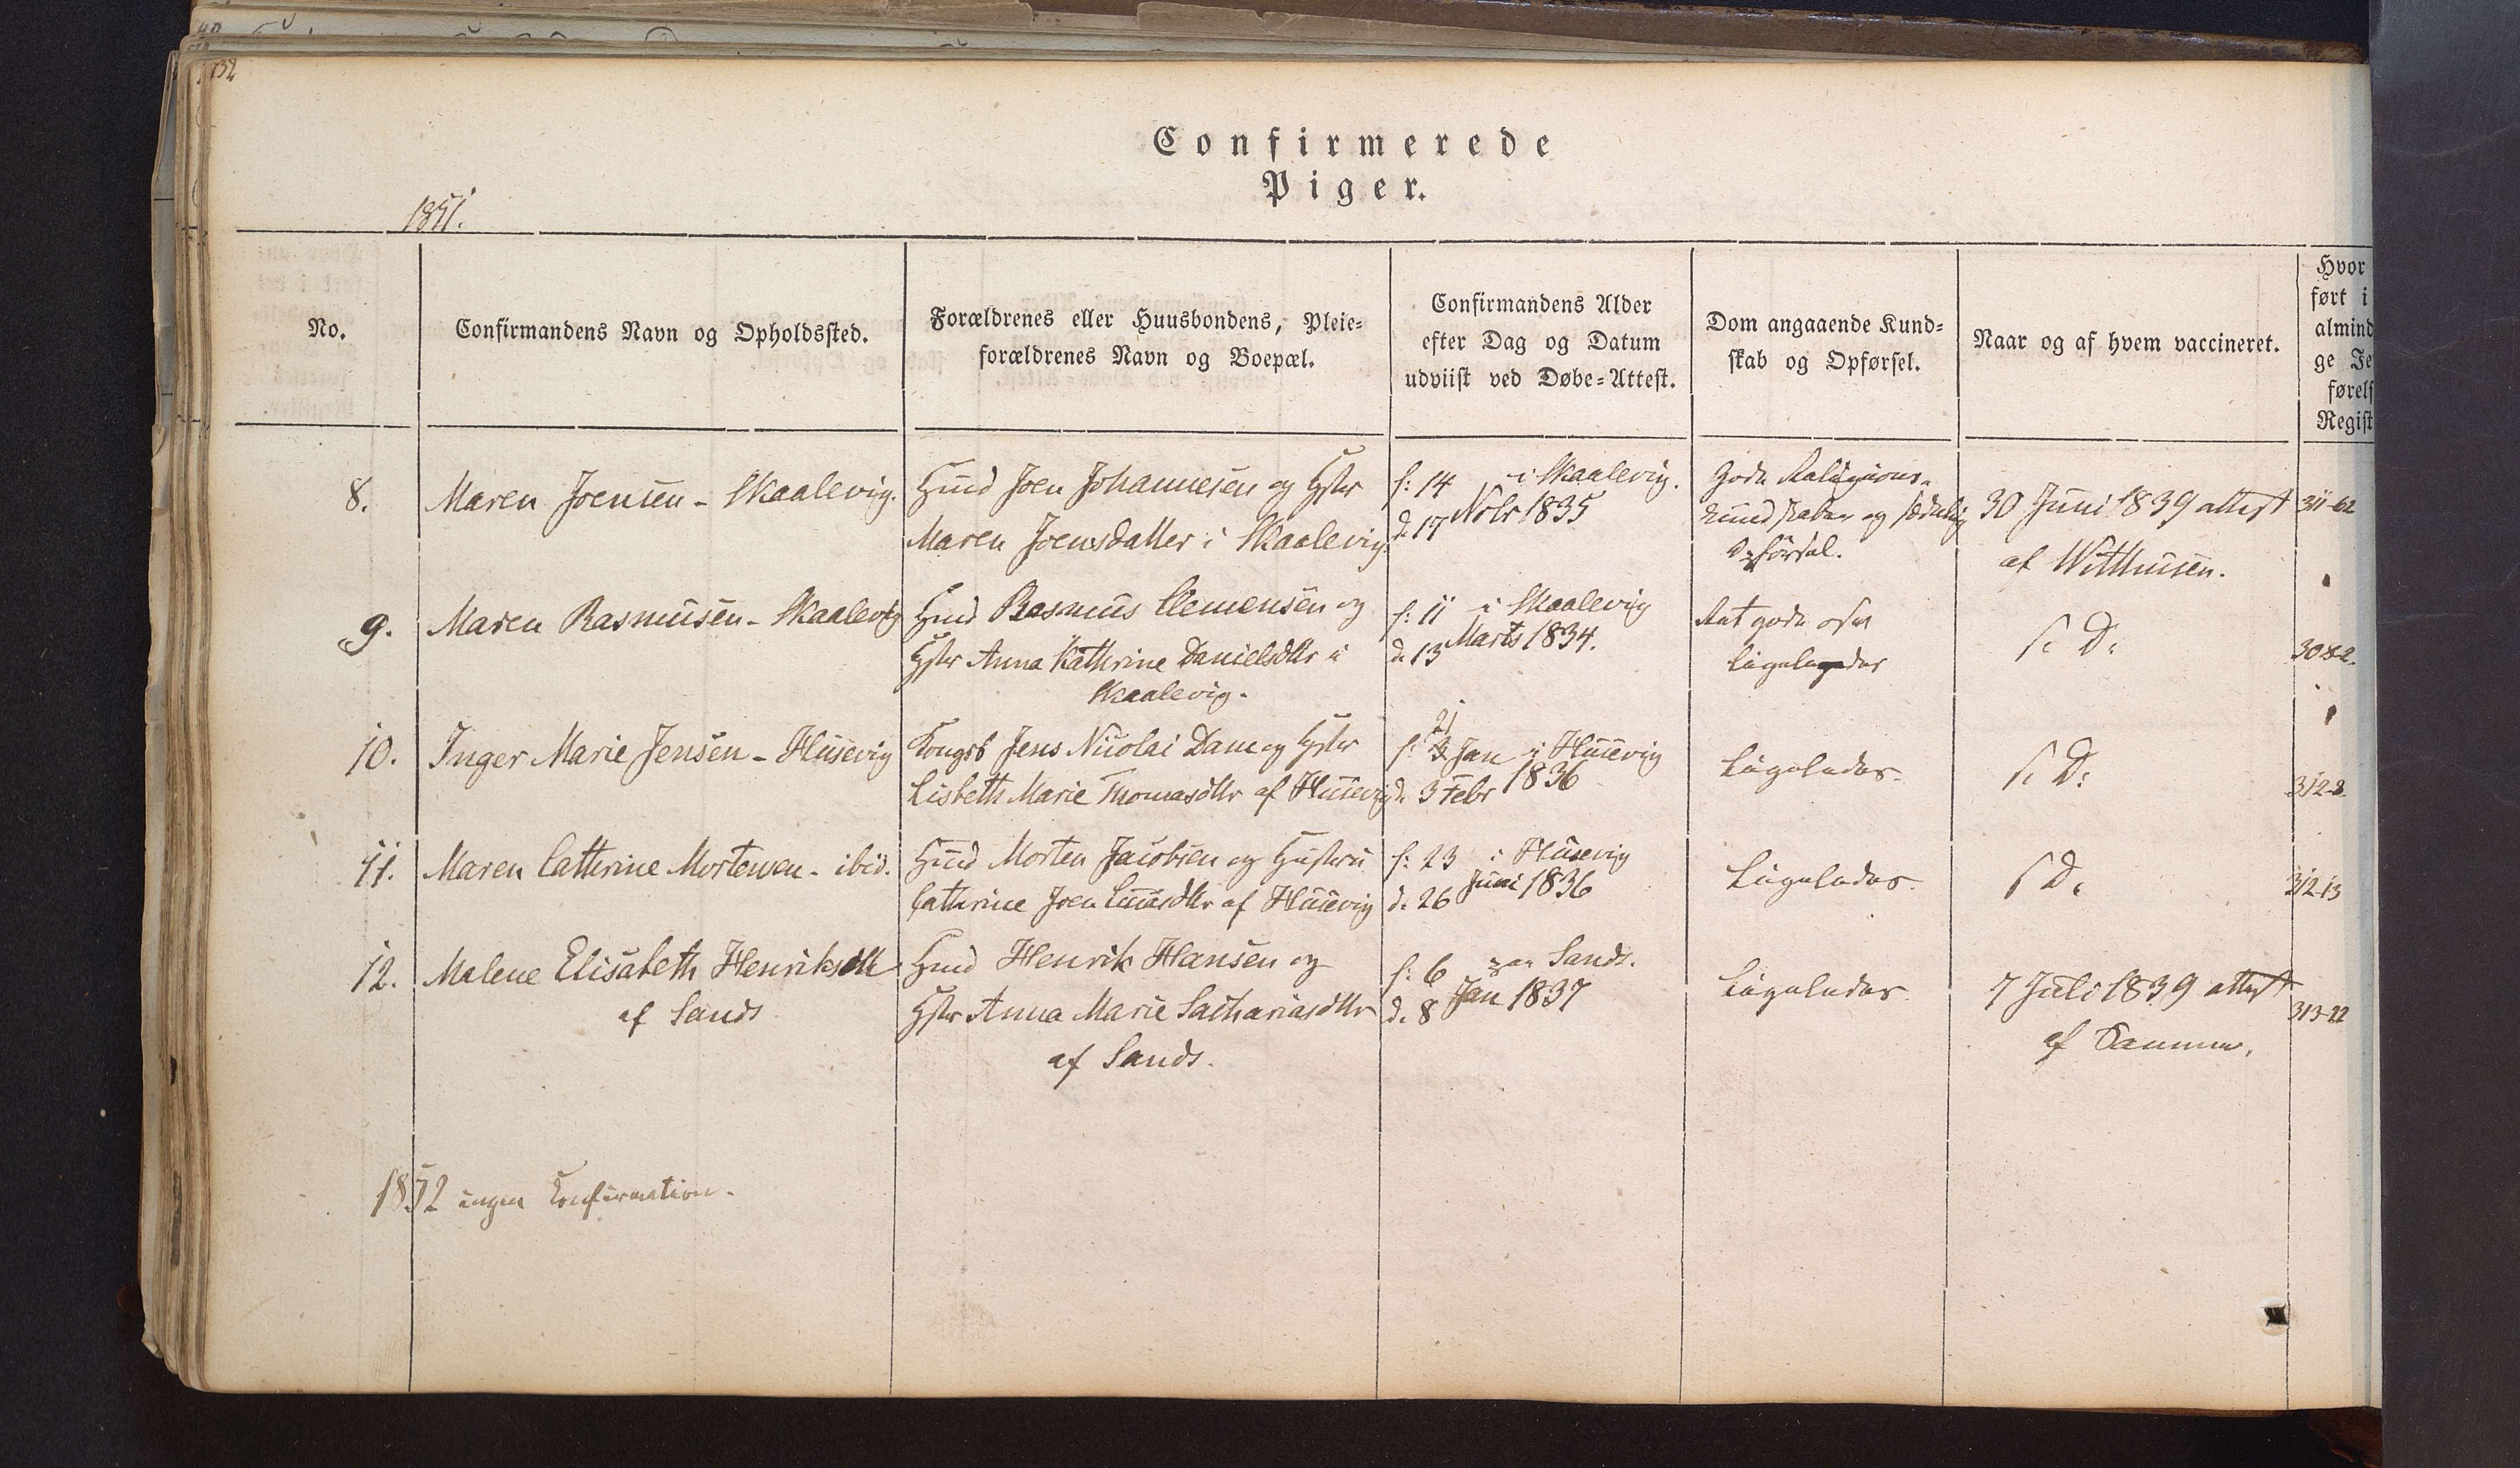 132
Confirmerede
Piger.
1851.
No.
Confirmandens Navn og Opholdssted.
Forældrenes eller Huusbondens, Pleie=
forældrenes Navn og Boepæl.
Confirmandens Alder
efter Dag og Datum
udviist ved Døbe=Attest.
Dom angaaende Kund=
skab og Opførsel.
Naar og af hvem vaccineret.
Hvor
ført i
almind
ge Je
førels
Regist
8.
Maren Joensen - Skaalevig.
Huusbd Joen Johannesen og Hstr
Maren Joensdatter i Skaalevig.
f: 14 i Skaalevig.
d. 17 Novbr 1835
Gode Religions-
kundskaber og sædelig
Opførsel.
30 Juni 1839 attest
af Witthusen.
311-62
9.
Maren Rasmusen - Skaalevig
Huusbd Rasmus Clemensen og
Hstr Anna Kathrine Danielsdttr i
Skaalevig.
f: 11 i Skaalevig
d. 13 Marts 1834.
Ret gode
Ligeledes
s. D.
308-2.
10.
Inger Marie Jensen - Husevig
Kongsb Jens Nicolai Dam og Hstr
Lisbeth Marie Thomasdttr af Husevig
f: 21 Jan i Husevig
d. 3 Febr 1836
Ligeledes.
s. D.
312-8
11.
Maren Cathrine Mortensen - ibid.
Huusbd Morten Jacobsen og Hustru
Cathrine Joen af Husevig
f: 23 i Husevig
d. 26 Juni 1836
Ligeledes.
s D.
312-13
12.
Malene Elisabeth Henriksdttr
af Sands
Huusbd Henrik Hansen og
Hstr Anna Marie Sachariasdttr
af Sands.
f: 6 paa Sands.
d. 8 Jan 1837
Ligeledes
7 Juli 1839 attest
af Samme.
313-22
1852 ingen Confirmation.